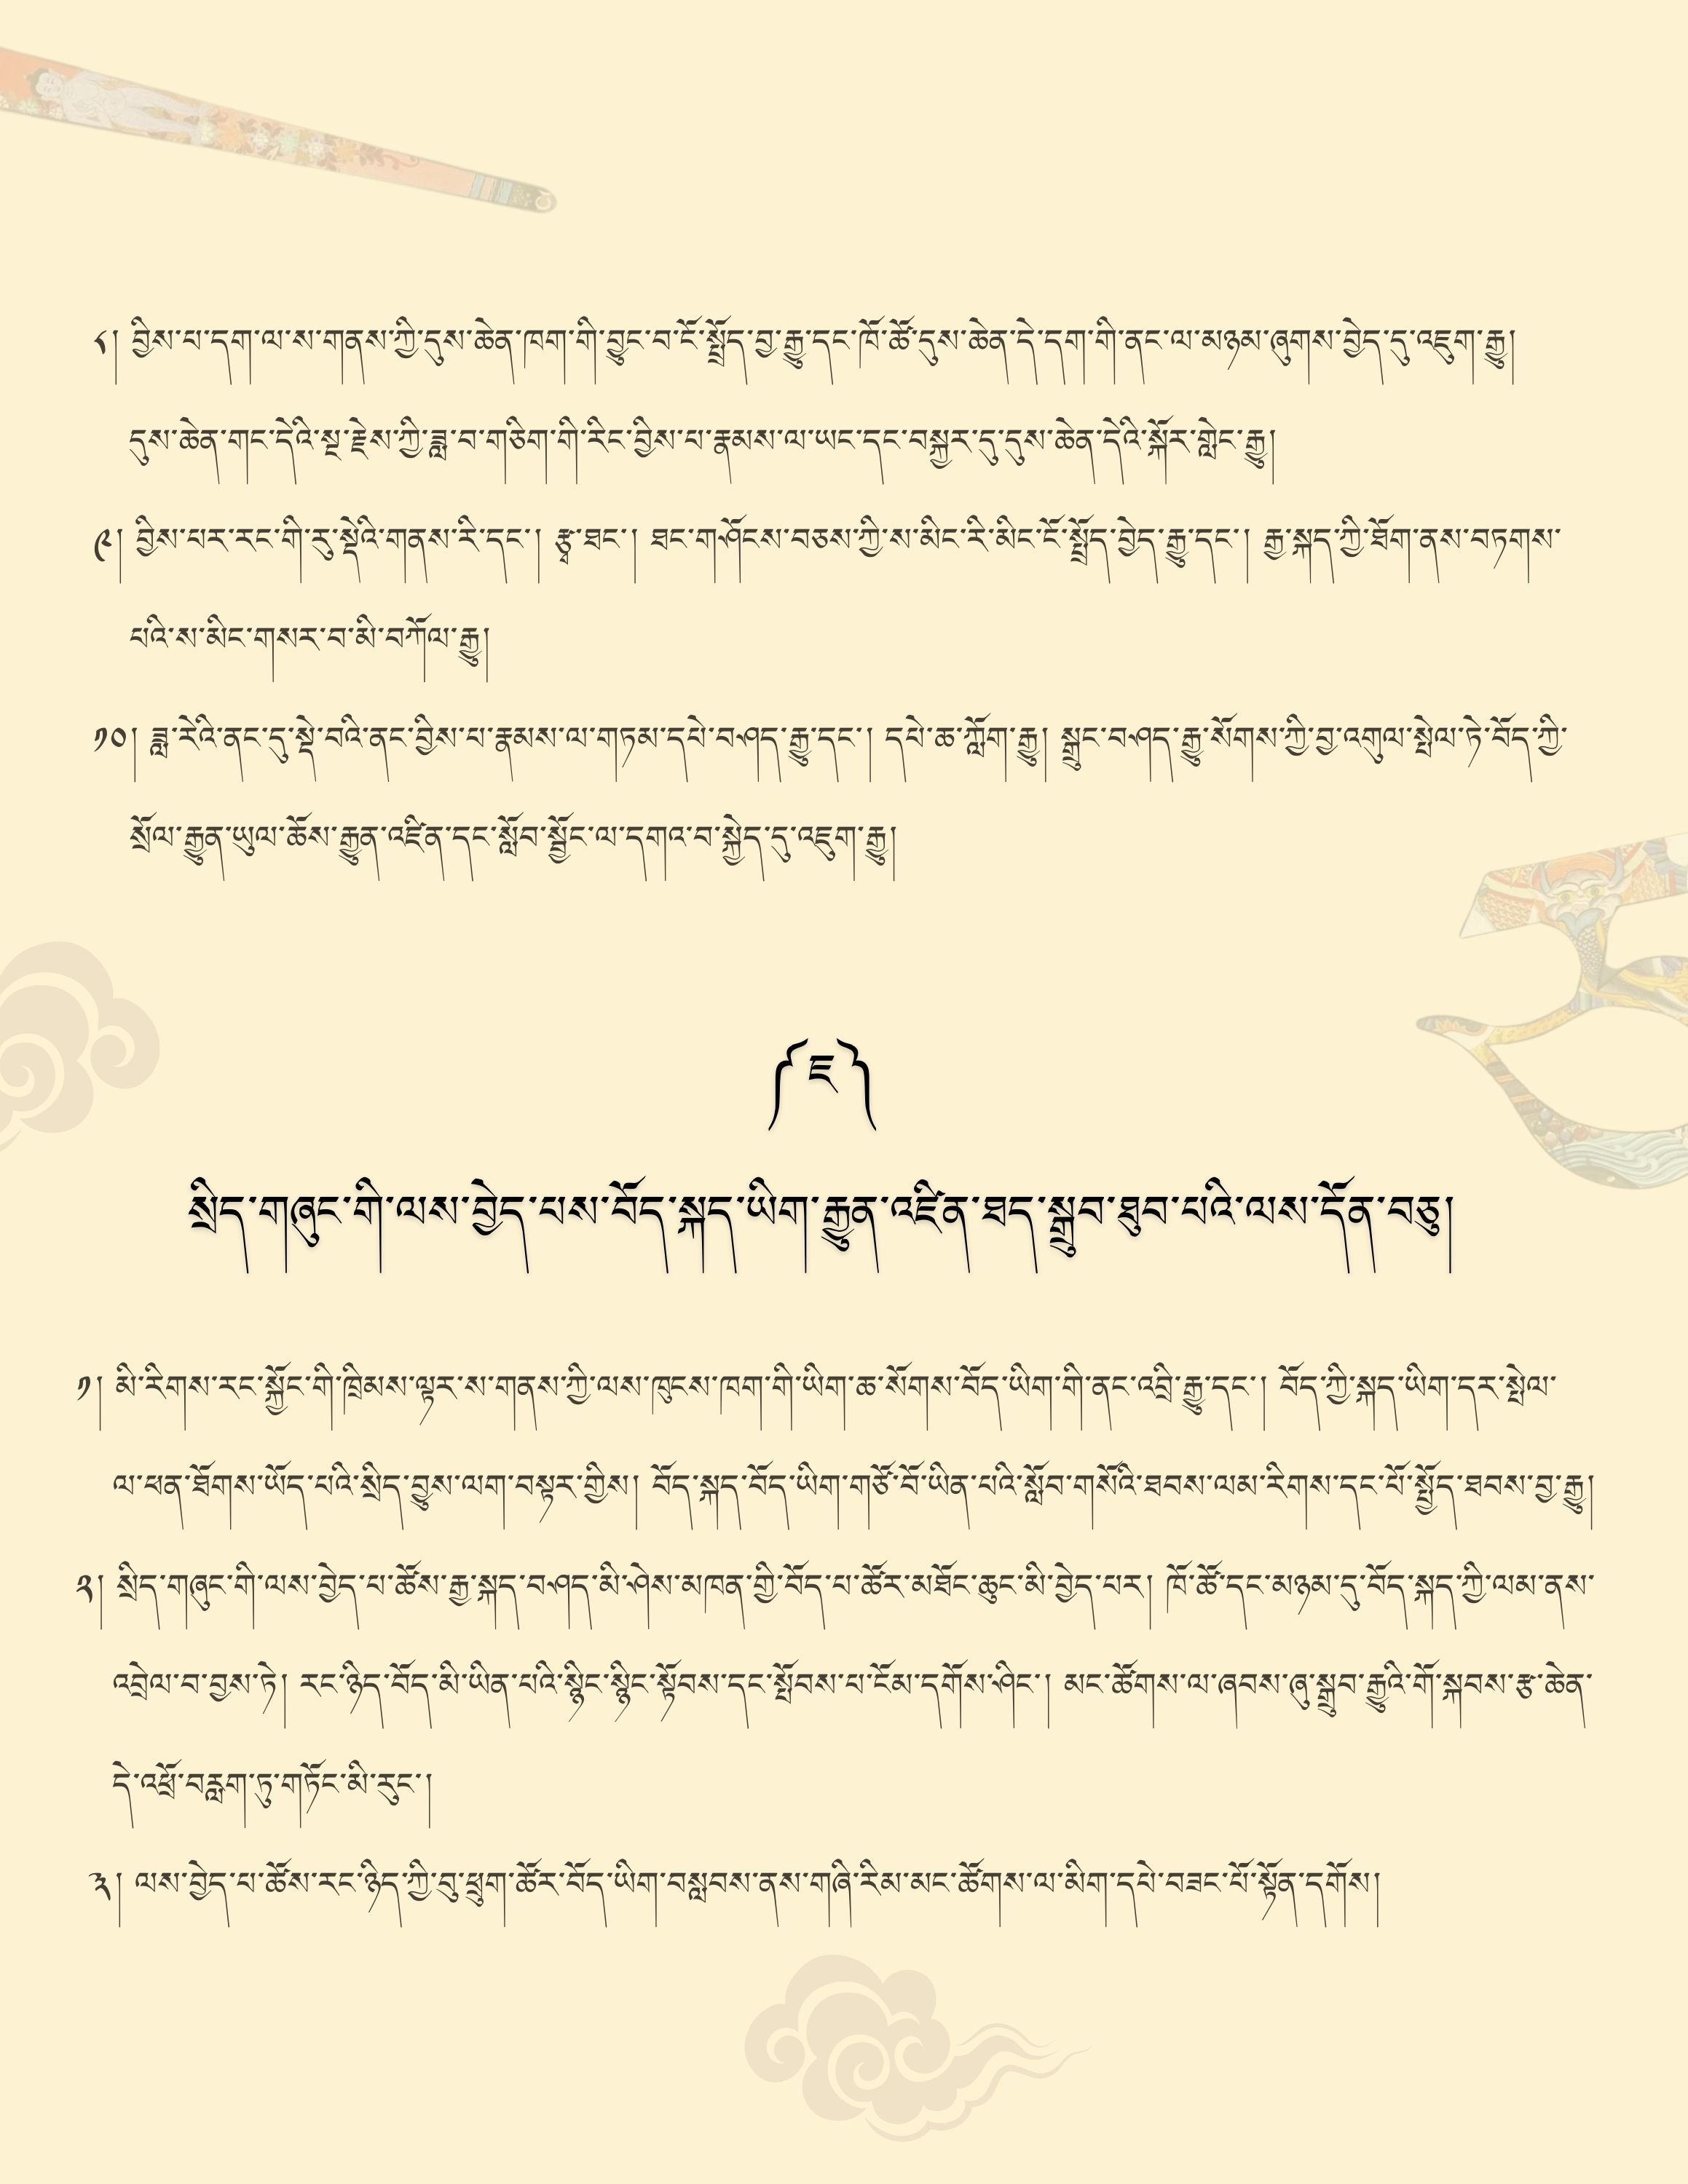 ༨། བྱིས་པ་དག་ལ་ས་གནས་ཀྱི་དུས་ཆེན་ཁག་གི་བྱུང་བ་ངོ་སྤྲོད་བྱ་རྒྱུ་དང་ཁོ་ཚོ་དུས་ཆེན་དེ་དག་གི་ནང་ལ་མཉམ་ཞུགས་བྱེད་དུ་འཇུག་རྒྱུ།
དུས་ཆེན་གང་དེའི་སྔ་རྗེས་ཀྱི་ཟླ་བ་གཅིག་གི་རིང་བྱིས་པ་རྣམས་ལ་ཡང་དང་བསྐྱར་དུ་དུས་ཆེན་དེའི་སྐོར་གླེང་རྒྱུ།
༩། བྱིས་པར་རང་གི་རུ་སྡེའི་གནས་རི་དང་། རྩྭ་ཐང་། ཐང་གཤོངས་བཅས་ཀྱི་ས་མིང་རི་མིང་ངོ་སྤྲོད་བྱེད་རྒྱུ་དང་། རྒྱ་སྐད་ཀྱི་ཐོག་ནས་བཏགས་
པའི་ས་མིང་གསར་བ་མི་བཀོལ་རྒྱུ།
༡༠། ཟླ་རེའི་ནང་དུ་སྡེ་བའི་ནང་བྱིས་པ་རྣམས་ལ་གཏམ་དཔེ་བཤད་རྒྱུ་དང་། དཔེ་ཆ་ཀློག་རྒྱུ། སྒྲུང་བཤད་རྒྱུ་སོགས་ཀྱི་བྱ་འགུལ་སྤེལ་ཏེ་བོད་ཀྱི་
སྲོལ་རྒྱུན་ཡུལ་ཆོས་རྒྱུན་འཛིན་དང་སློབ་སྦྱོང་ལ་དགའ་བ་སྐྱེད་དུ་འཇུག་རྒྱུ།
༼ཇ༽
སྲིད་གཞུང་གི་ལས་བྱེད་པས་བོད་སྐད་ཡིག་རྒྱུན་འཛིན་ཐད་སྒྲུབ་ཐུབ་པའི་ལས་དོན་བཅུ།
༡། མི་རིགས་རང་སྐྱོང་གི་ཁྲིམས་ལྟར་ས་གནས་ཀྱི་ལས་ཁུངས་ཁག་གི་ཡིག་ཆ་སོགས་བོད་ཡིག་གི་ནང་འབྲི་རྒྱུ་དང་། བོད་ཀྱི་སྐད་ཡིག་དར་སྤེལ་
ལ་ཕན་ཐོགས་ཡོད་པའི་སྲིད་བྱུས་ལག་བསྟར་གྱིས། བོད་སྐད་བོད་ཡིག་གཙོ་བོ་ཡིན་པའི་སློབ་གསོའི་ཐབས་ལམ་རིགས་དང་པོ་སྤྱོད་ཐབས་བྱ་རྒྱུ།
༢། སྲིད་གཞུང་གི་ལས་བྱེད་པ་ཚོས་རྒྱ་སྐད་བཤད་མི་ཤེས་མཁན་གྱི་བོད་པ་ཚོར་མཐོང་ཆུང་མི་བྱེད་པར། ཁོ་ཚོ་དང་མཉམ་དུ་བོད་སྐད་ཀྱི་ལམ་ནས་
འབྲེལ་བ་བྱས་ཏེ། རང་ཉིད་བོད་མི་ཡིན་པའི་སྙིང་སྙིང་སྟོབས་དང་སྤོབས་པ་ངོམ་དགོས་ཤིང་། མང་ཚོགས་ལ་ཞབས་ཞུ་སྒྲུབ་རྒྱུའི་གོ་སྐབས་རྩ་ཆེན་
དེ་འཕྲོ་བརླག་ཏུ་གཏོང་མི་རུང་།
༣། ལས་བྱེད་པ་ཚོས་རང་ཉིད་ཀྱི་བུ་ཕྲུག་ཚོར་བོད་ཡིག་བསླབས་ནས་གཞི་རིམ་མང་ཚོགས་ལ་མིག་དཔེ་བཟང་པོ་སྟོན་དགོས།